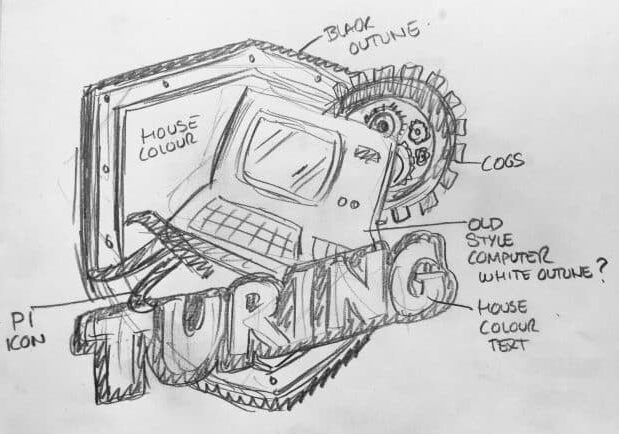 BLACK
OUTLINE.
HOUSE
COLOUR
COGS
OLD
STYLE
COMPUTER
WHITE OUTLINE?
PI
ICON
TURING
HOUSE
COLOUR
TEXT